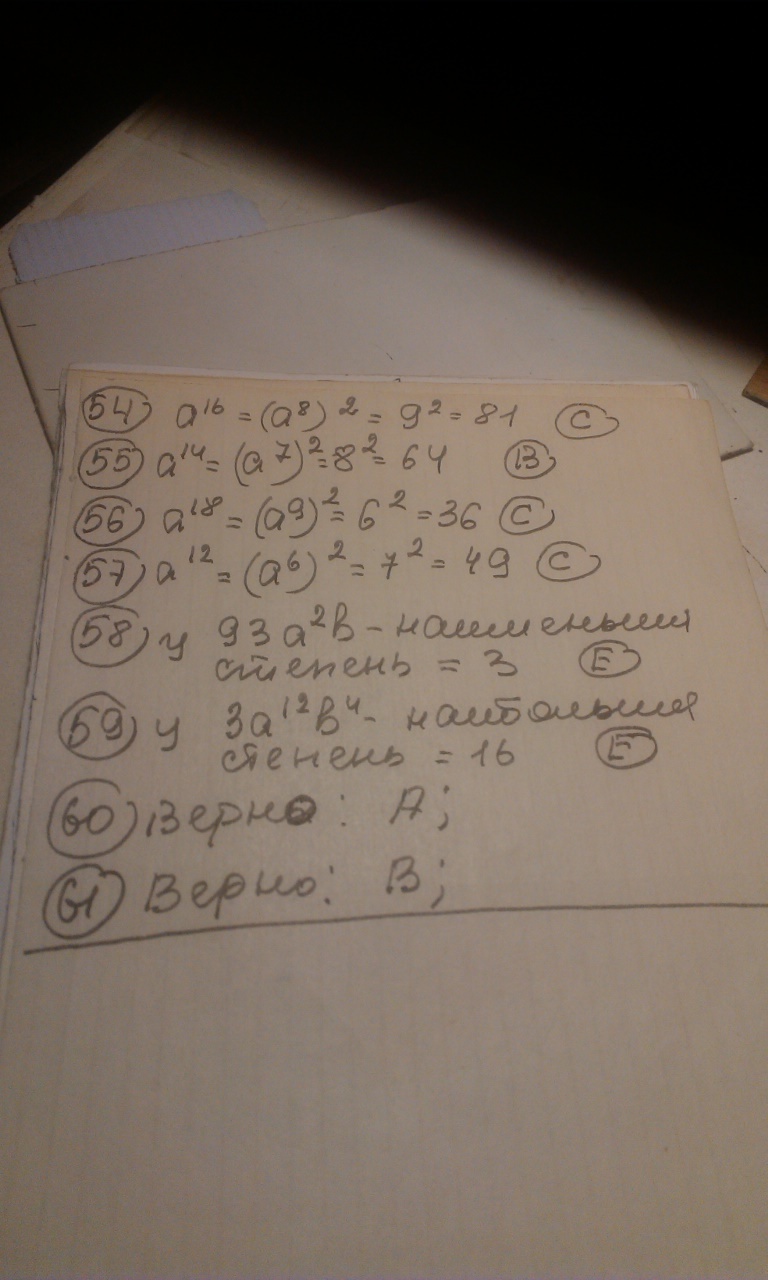 54 a¹⁶ = (a⁸)² = 9² = 81 C
55 a¹⁴ = (a⁷)² = 8² = 64 B
56 a¹⁸ = (a⁹)² = 6² = 36 C
57 a¹² = (a⁶)² = 7² = 49 C
58 у 93a²b - наименьшая
степень = 3 E
59 у 3a¹²b⁴ - наибольшая
степень = 16 E
60 Верно: A;
61 Верно: B;